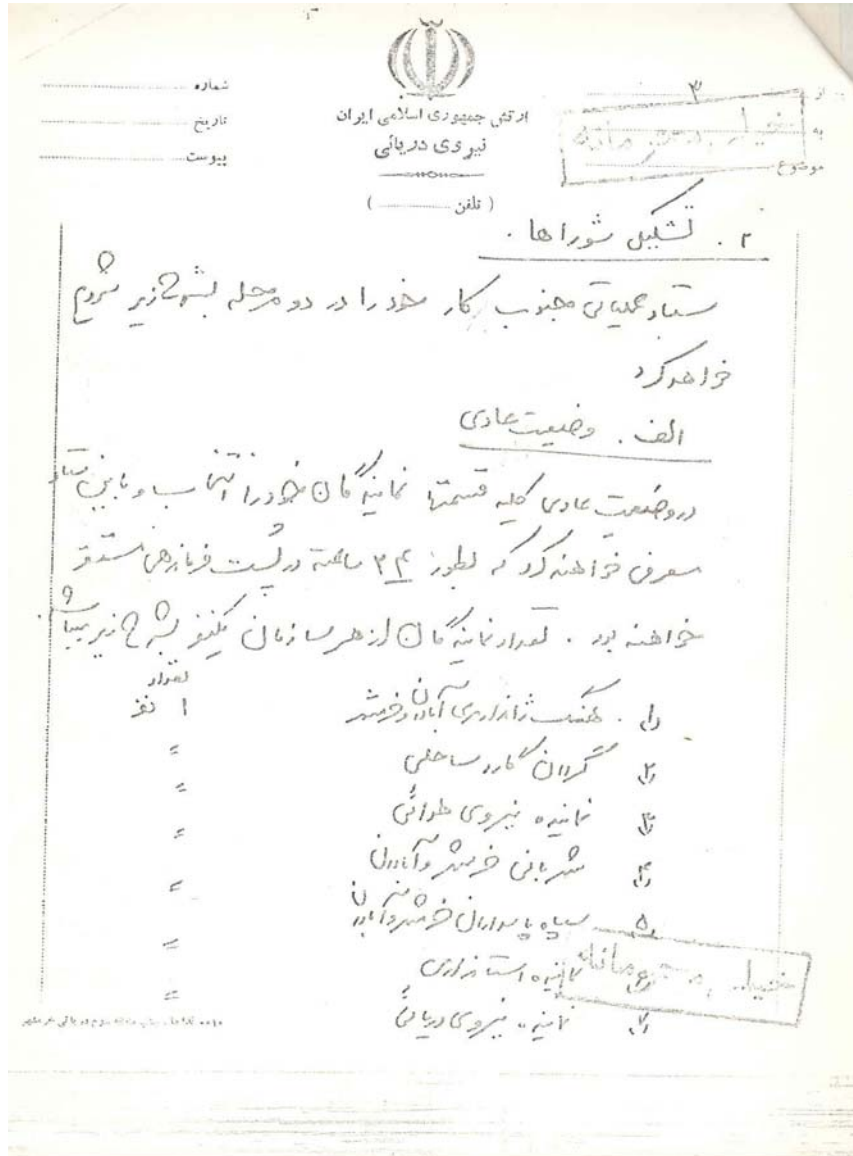 شماره
تاریخ
پیوست
ارتش جمهوری اسلامی ایران
نیروی دریائی
( تلفن )
از
۳
به
موضوع
خیلی محرمانه
۲. تشکیل شوراها.
ستاد عملیاتی جنوب کار خود را در دو مرحله بشرح زیر شروع
خواهد کرد
الف. وضعیت عادی
در وضعیت عادی کلیه قسمتها نمایندگان خود را انتخاب و باین ستاد
معرفی خواهند کرد که بطور ۲۴ ساعته در پست فرماندهی مستقر
خواهند بود. تعداد نمایندگان از هر سازمان یکنفر بشرح زیر میباشد.
تعداد
۱. هنگ ژاندارمری آبادان و خرمشهر ۱ نفر
۲ گردان گارد ساحلی =
۳ نماینده نیروی هوائی =
۴ شهربانی خرمشهر و آبادان =
۵ سپاه پاسداران خرمشهر و آبادان =
۶ نماینده استانداری =
۷ نماینده نیروی دریائی =
خیلی محرمانه